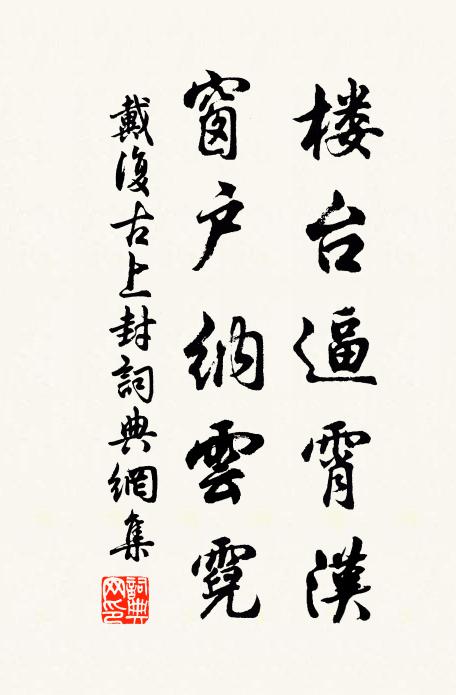 楼台逼霄漢
窗户納雲霓
戴復古上封詞典網集
詞典網印